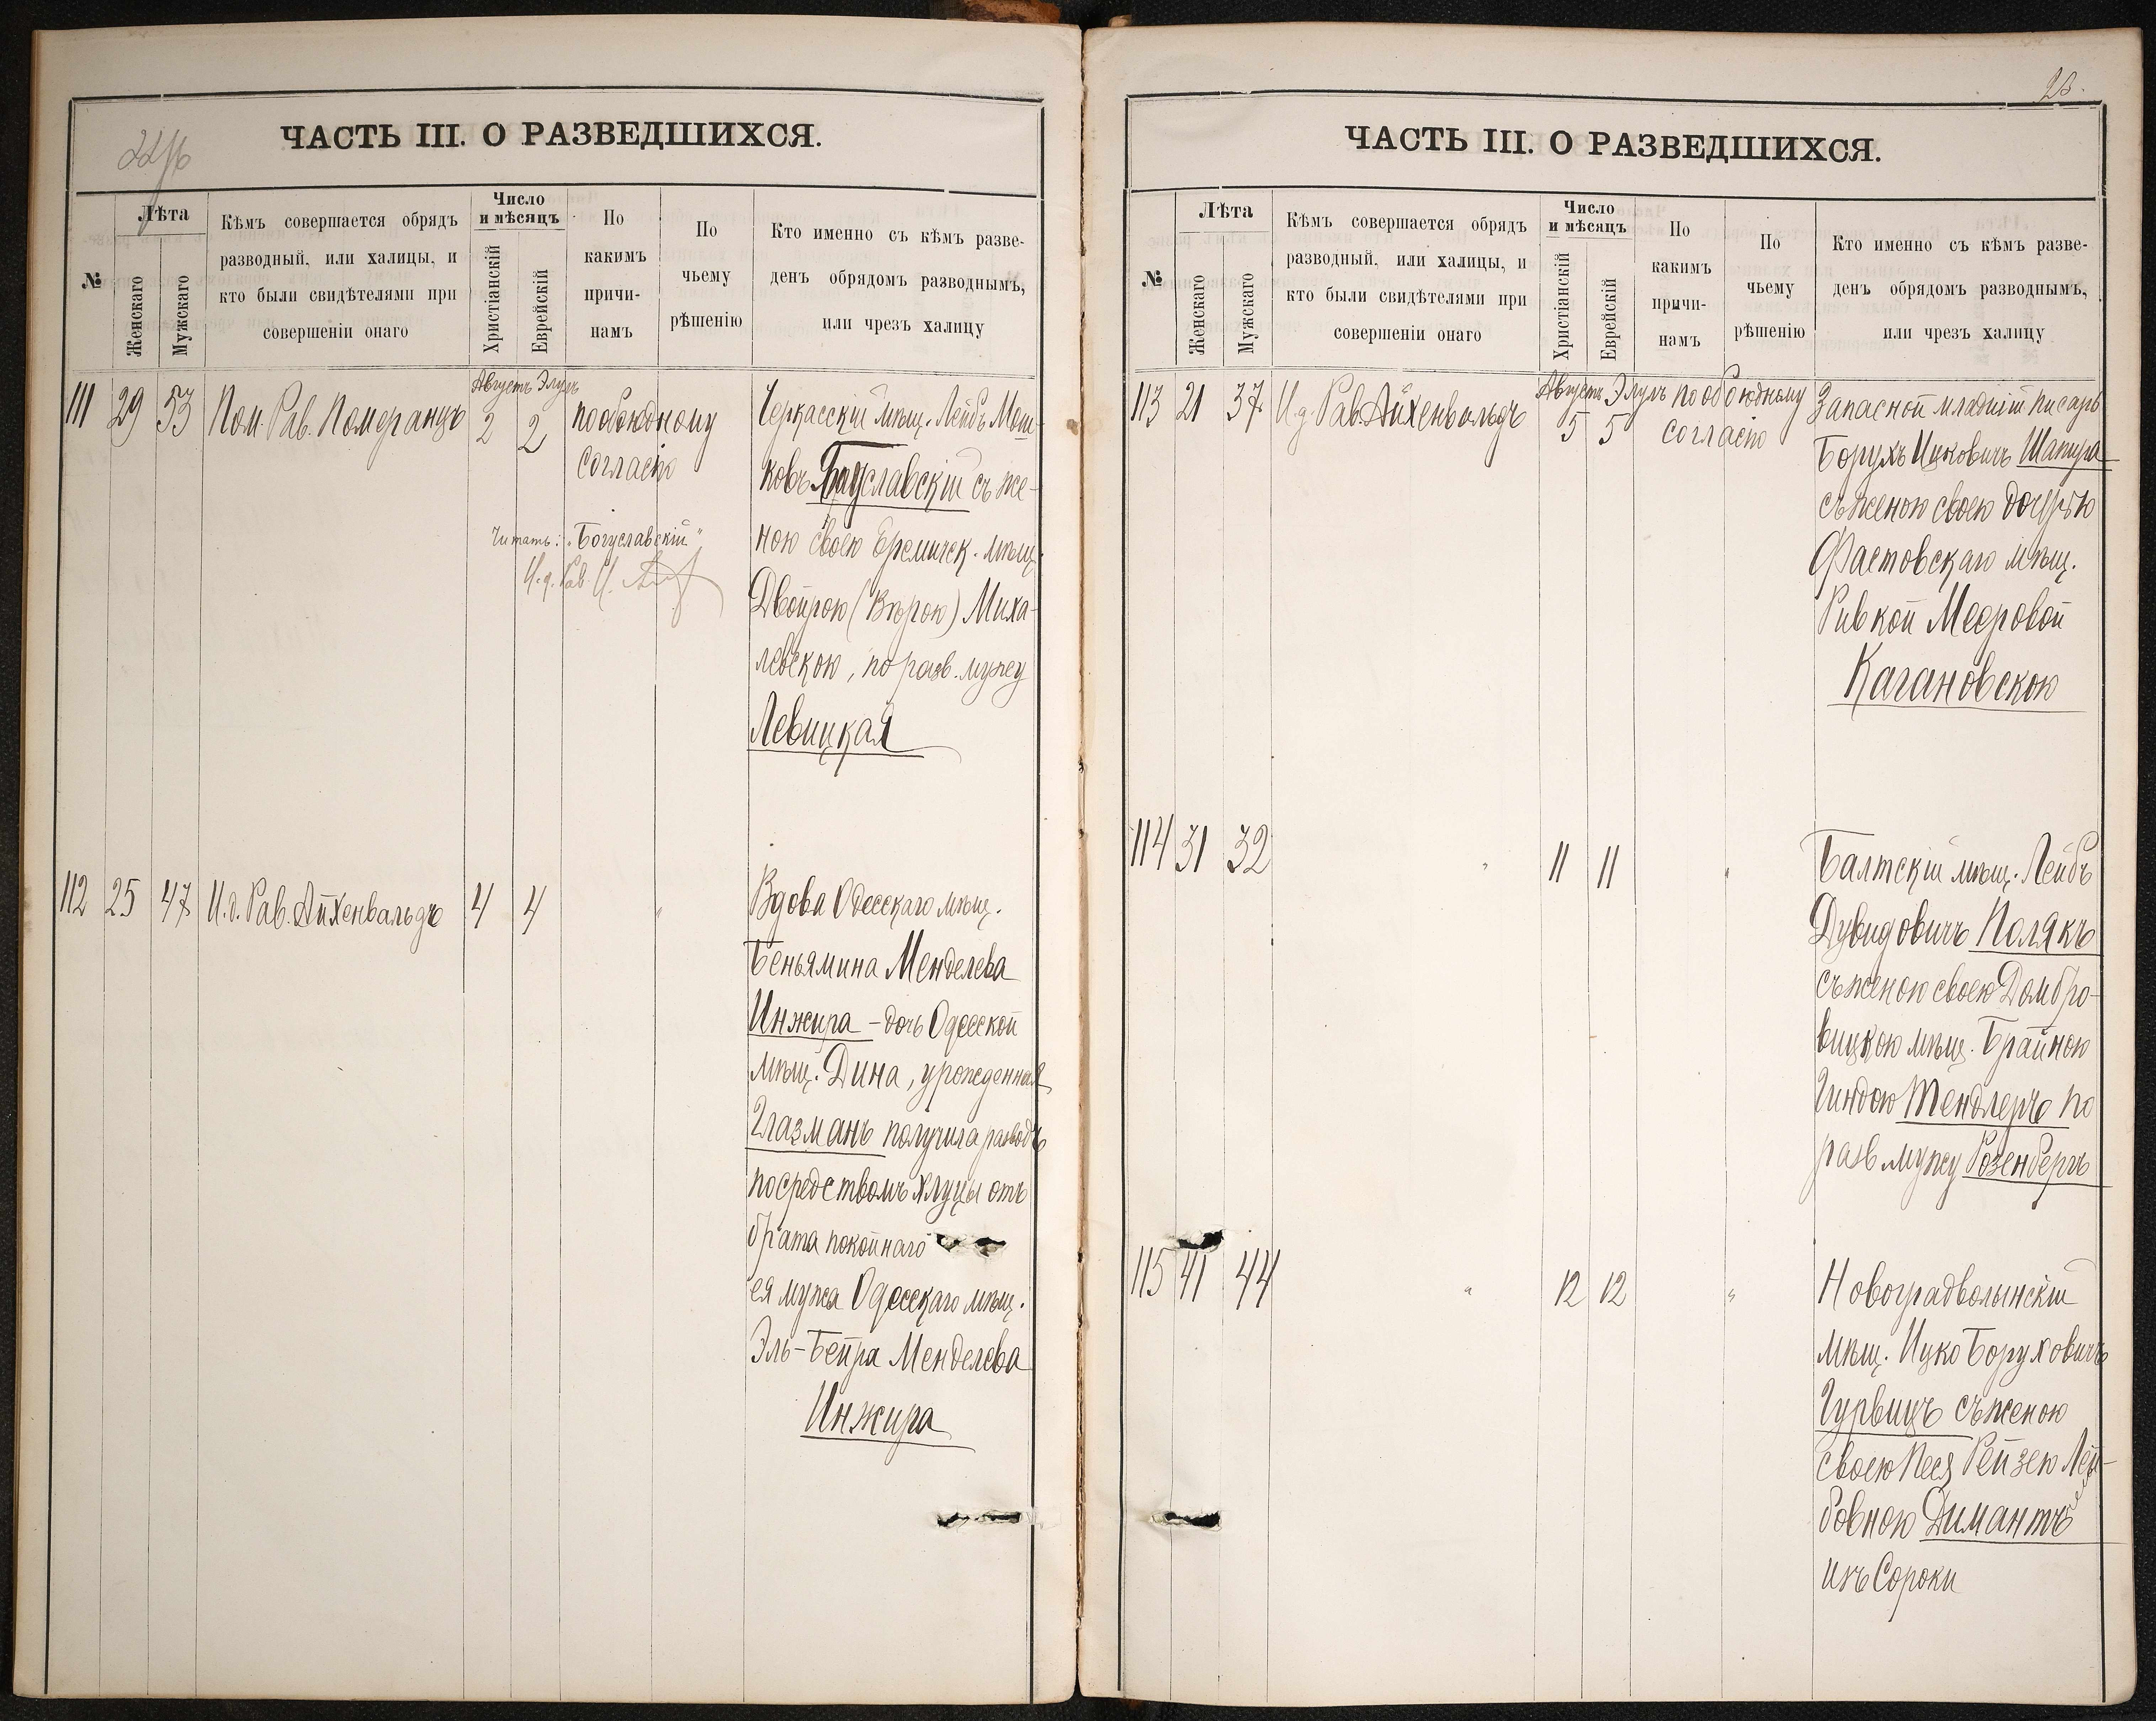 ЧАСТЬ III. О РАЗВЕДШИХСЯ.
№
Лѣта
Женскаго
Мужскаго
Кѣмъ совершается обрядъ
разводный, или халицы, и
кто были свидѣтелями при
совершеніи онаго
Число
и мѣсяцъ
Христіанскій
Еврейскій
По
какимъ
причи-
намъ
По
чьему
рѣшенію
Кто именно съ кѣмъ разве-
денъ обрядомъ разводнымъ,
или чрезъ халицу
111 29 53 Пом. Рав. Померанцъ Августъ 2 Элулъ 2 по обоюдному
согласію
Черкасскій мѣщ. Лейбъ Мош-
ковъ Богуславскій съ же-
ною своею Еремичск. мѣщ.
Двойрою (Вѣрою) Миха-
левскою, по разв. мужу
Левицкая
Читать: „Богуславскій"
И.д. Рав.
112 25 47 И.д. Рав. Айхенвальдъ 4 4 "
Вдова Одесскаго мѣщ.
Беньямина Менделева
Инжира - дочь Одесской
мѣщ. Дина, урожденная
Глазманъ получила разводъ
посредствомъ хлуцы отъ
брата покойнаго
ея мужа Одесскаго мѣщ.
Эль-Бейра Менделева
Инжира
23.
ЧАСТЬ III. О РАЗВЕДШИХСЯ.
№
Лѣта
Женскаго
Мужскаго
Кѣмъ совершается обрядъ
разводный, или халицы, и
кто были свидѣтелями при
совершеніи онаго
Число
и мѣсяцъ
Христіанскій
Еврейскій
По
какимъ
причи-
намъ
По
чьему
рѣшенію
Кто именно съ кѣмъ разве-
денъ обрядомъ разводнымъ,
или чрезъ халицу
113 21 37 И.д. Рав. Айхенвальдъ Августъ 5 Элулъ 5 по обоюдному
согласію
Запасной младшій писарь
Борухъ Ицковичъ Шапира
съ женою своею дочерью
Фастовскаго мѣщ.
Ривкой Мееровой
Кагановскою
114 31 32 " 11 11 "
Балтскій мѣщ. Лейбъ
Дувидовичъ Полякъ
съ женою своею Домбро-
вицкою мѣщ. Брайною
Гиндою Тендлеръ по
разв. мужу Розенбергъ
115 41 44 " 12 12 "
Новоградволынскій
мѣщ. Ицко Боруховичъ
Гурвицъ съ женою
своею Песя Рейзею Лей-
бовною Димантъ
изъ Сороки